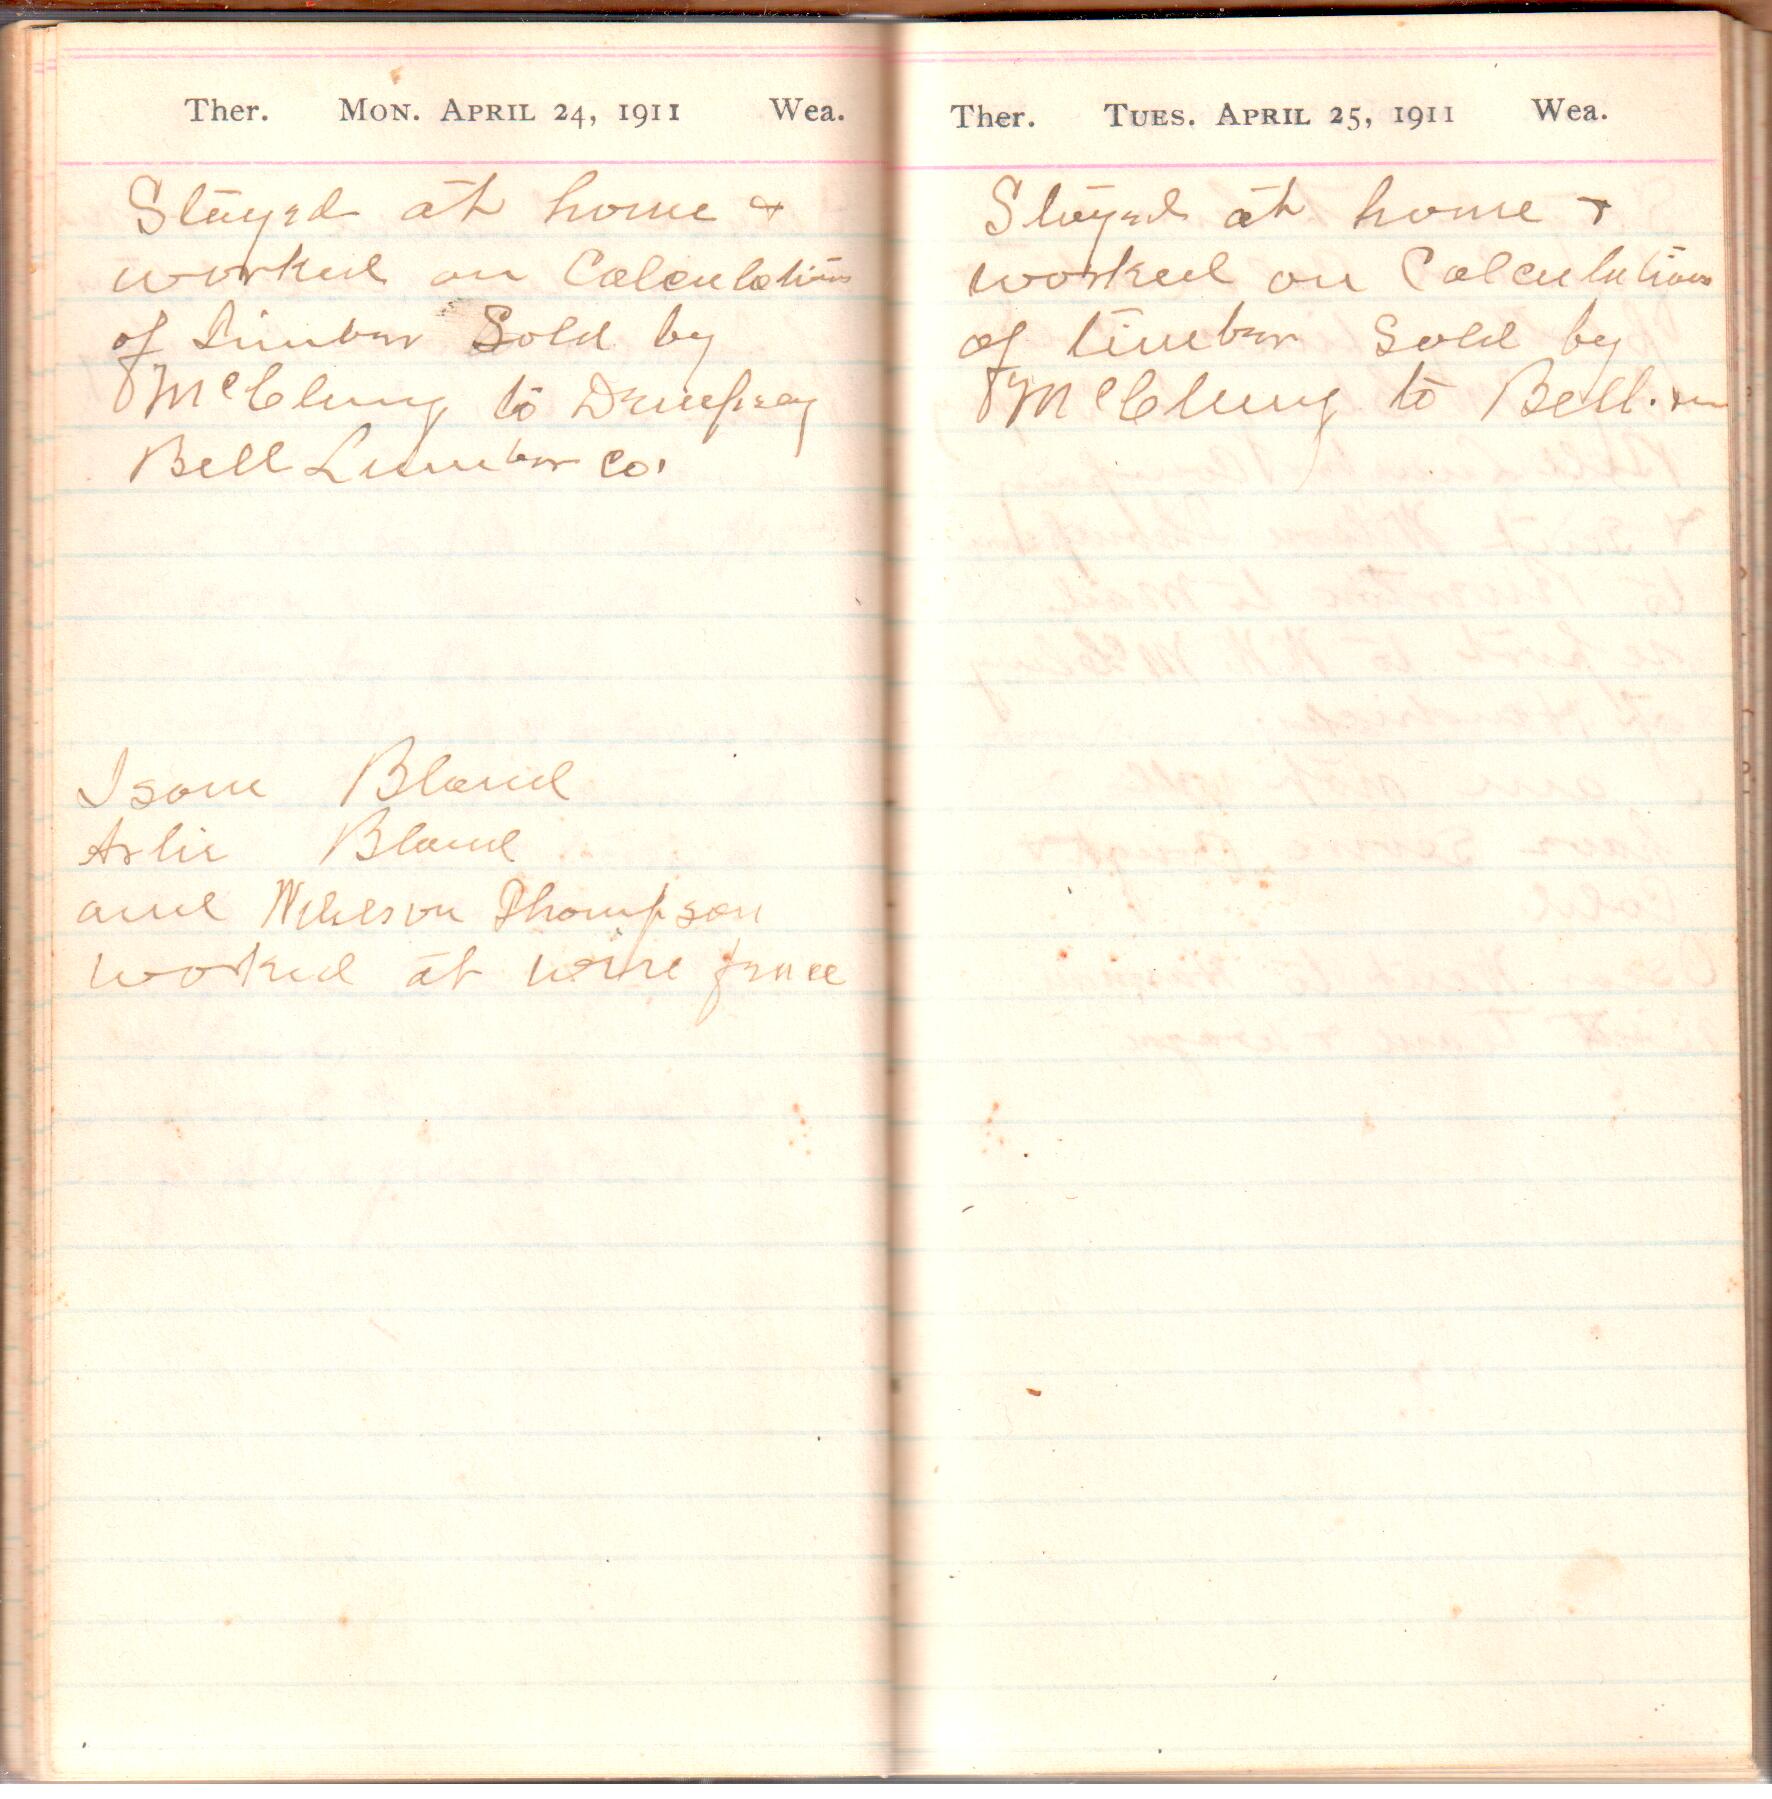 Ther. MON. APRIL 24, 1911 Wea.
Stayed at home &
worked on Calculations
of Timber Sold by
McClung to Dempsey
Bell Lumber Co.
Isom Bland
Arlie Bland
and Wilson Thompson
worked at wire fence
Ther. TUES. APRIL 25, 1911 Wea.
Stayed at home &
worked on Calculations
of timber Sold by
McClung to Bell.